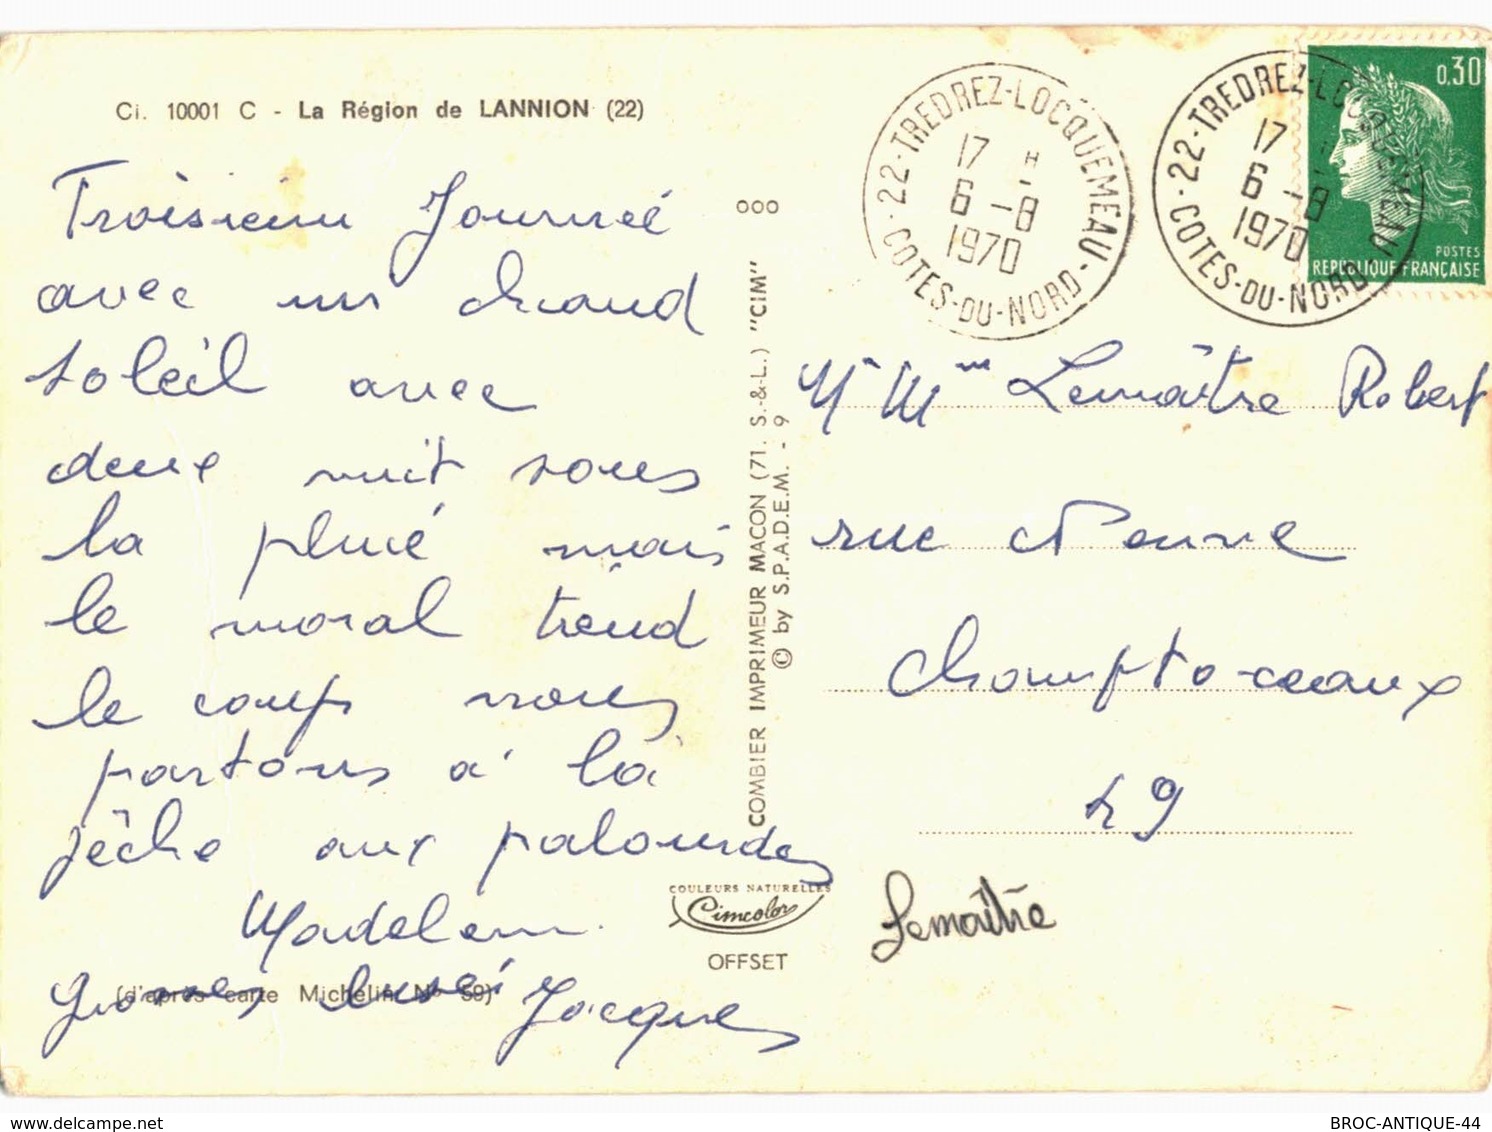 Ci. 10001 C - La Région de LANNION (22)
Troisiem Journeé
avec un chaud
soleil avec
deux nuit sous
la pluié mais
le moral tiend
le coup nous
partons à la
pêche aux palourdes
Madelein
(d'après carte Michelin N° 59)
Jacques
ooo
COMBIER IMPRIMEUR MACON (71. S.-&-L.) "CIM"
© by S.P.A.D.E.M. - 9
COULEURS NATURELLES
Cimcolor
OFFSET
22-TREDREZ-LOCQUEMEAU
17 H
6-8
1970
COTES-DU-NORD
22-TREDREZ-LOCQUEMEAU
17 H
6-8
1970
COTES-DU-NORD
0,30
POSTES
REPUBLIQUE FRANÇAISE
Mr Mme Lemaître Robert
rue
Champto-ceaux
49
Lemaître
BROC-ANTIQUE-44